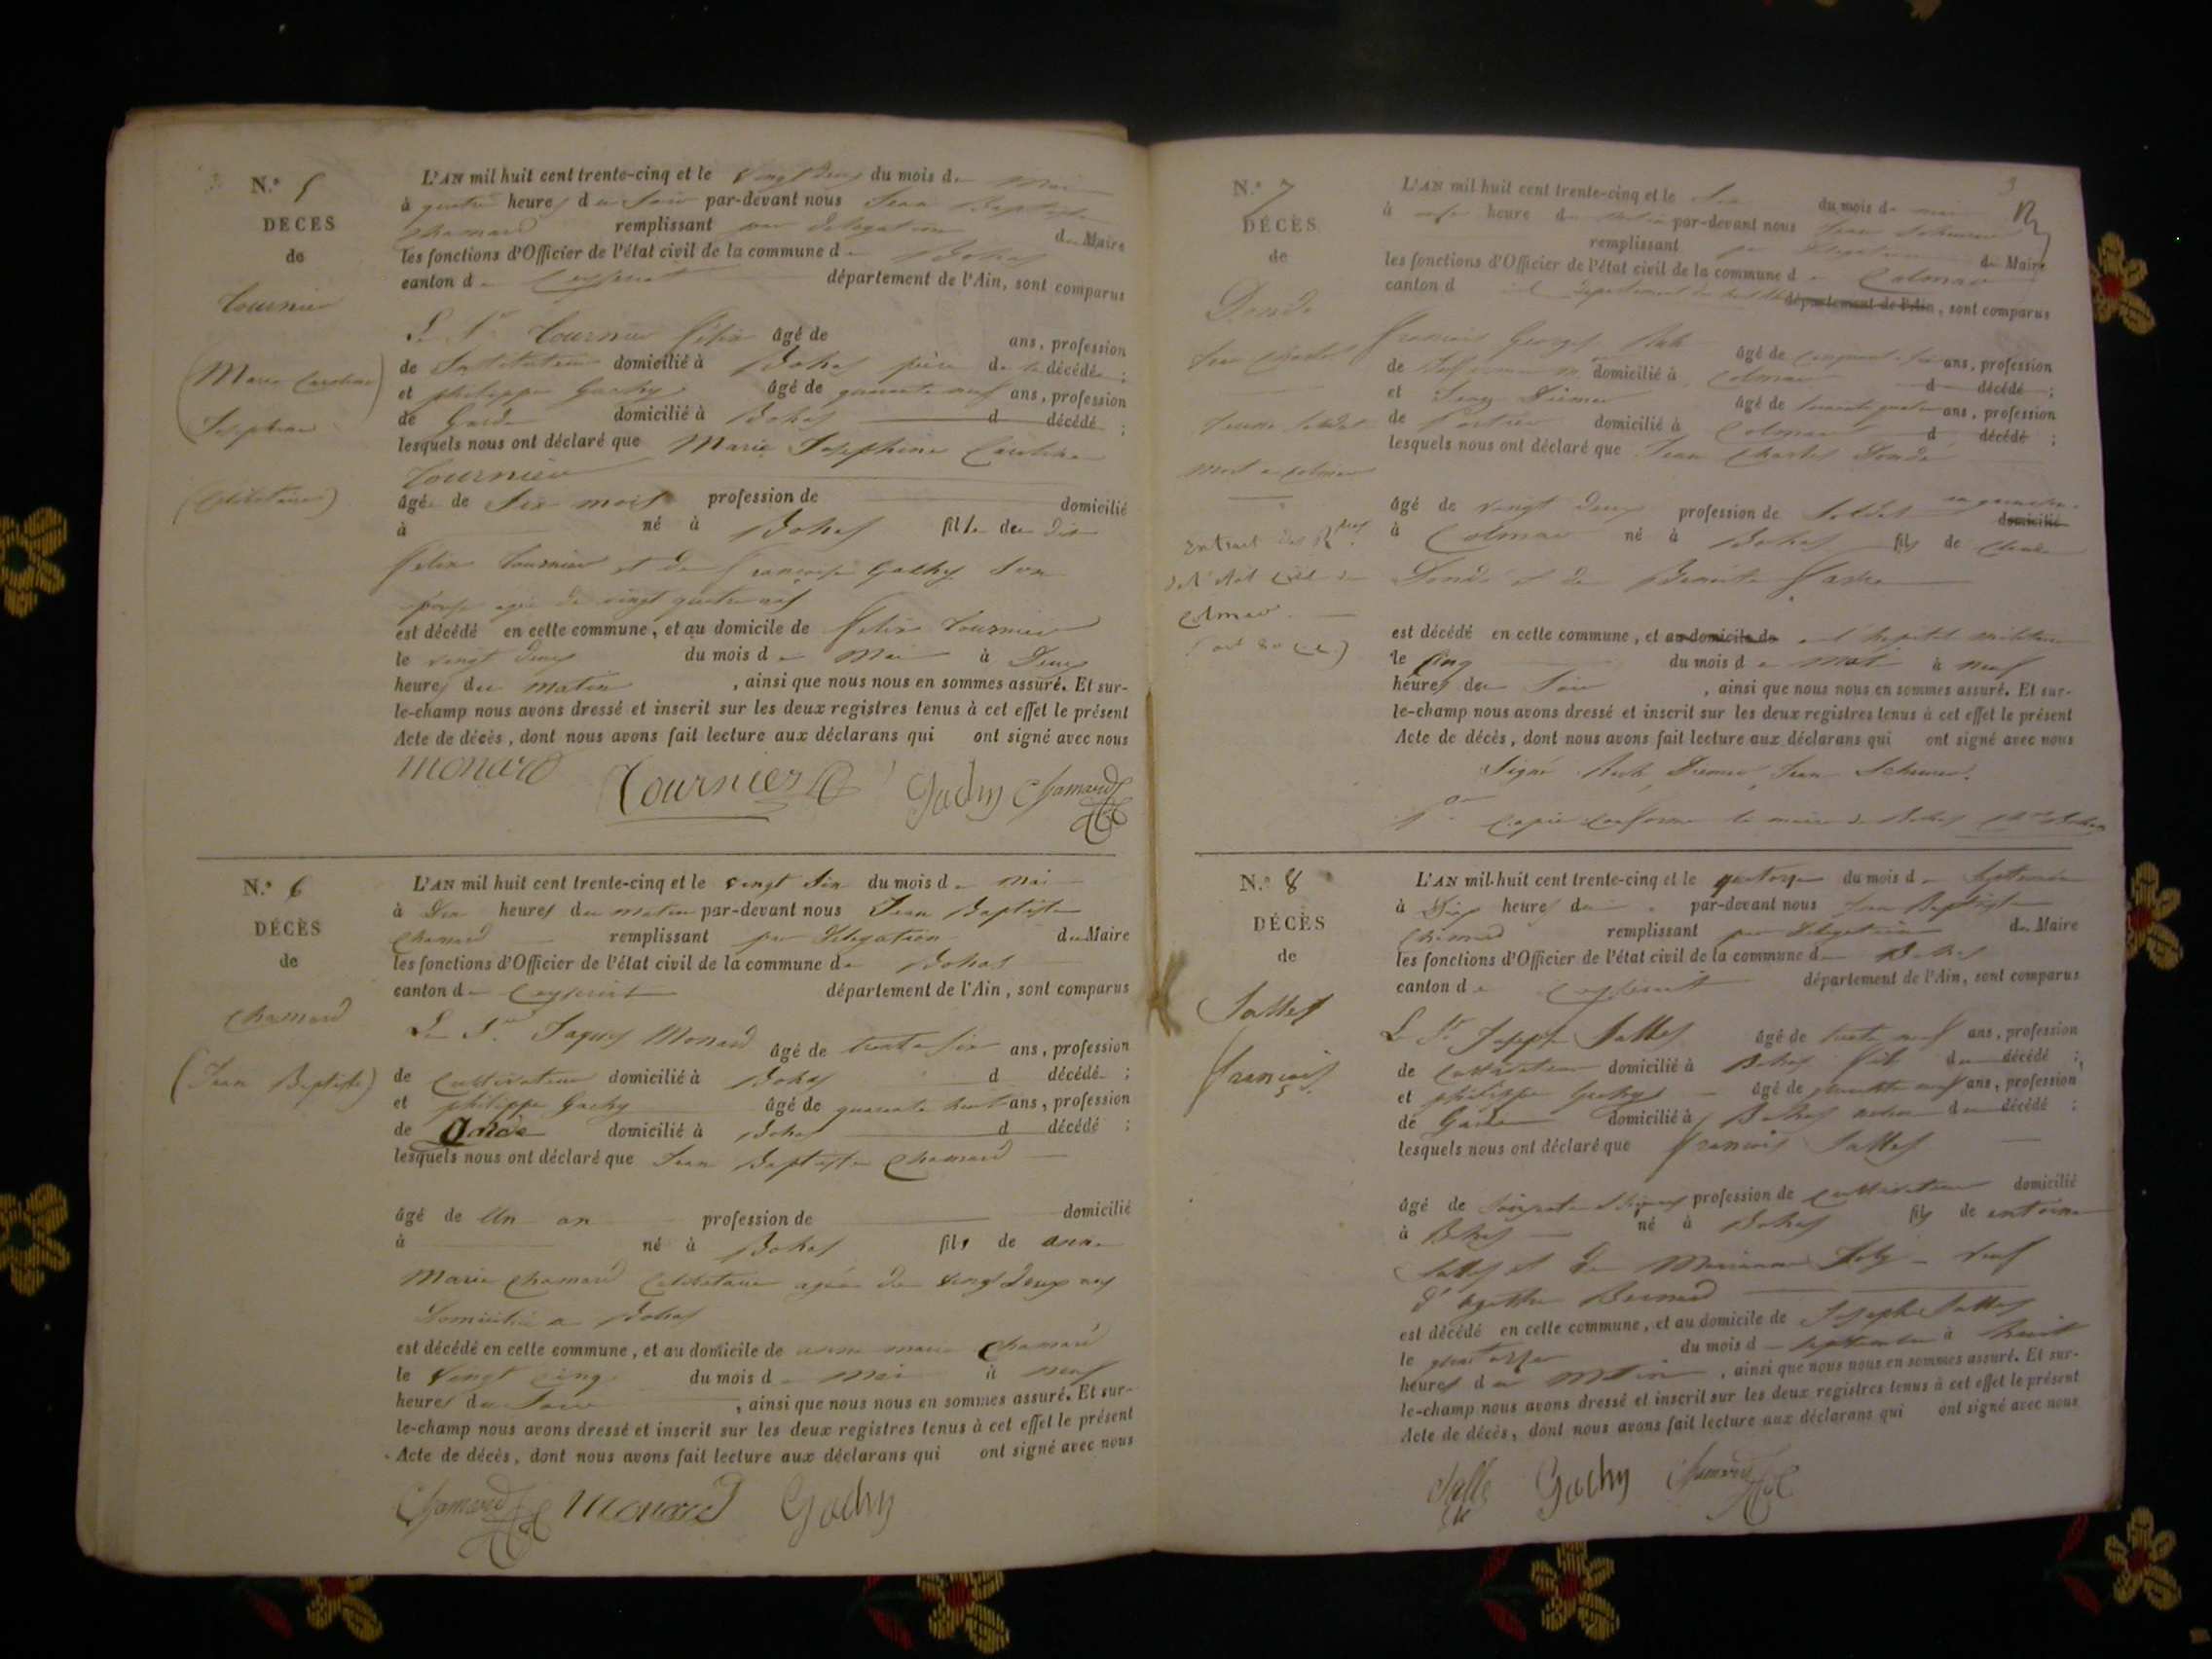 N.° 5
DÉCÈS
de
Tournier
(Marie Caroline)
Josephine
(Célibataire)
L'AN mil huit cent trente-cinq et le vingt deux du mois de Mai
à quatre heures du Soir par-devant nous Jean Baptiste
Chamard remplissant par délégation du Maire
les fonctions d'Officier de l'état civil de la commune de Bohas
canton de Ceyseriat département de l'Ain, sont comparus
Le Sr Tournier Félix âgé de ans, profession
de Instituteur domicilié à Bohas père de la décédée ;
et philippe Gachy âgé de quarante neuf ans, profession
de Garde domicilié à Bohas d décédé ;
lesquels nous ont déclaré que Marie Josephine Caroline
Tournier
âgée de Six mois profession de domicilié
à né à Bohas fille du dit
Félix Tournier et de Françoise Gachy Son
épouse agée de vingt quatre ans
est décédé en cette commune, et au domicile de Félix Tournier
le vingt deux du mois de Mai à Deux
heures du matin , ainsi que nous nous en sommes assuré. Et sur-
le-champ nous avons dressé et inscrit sur les deux registres tenus à cet effet le présent
Acte de décès, dont nous avons fait lecture aux déclarans qui ont signé avec nous
monard Tournier Gachy Chamard
N.° 6
DÉCÈS
de
Chamard
(Jean Baptiste)
L'AN mil huit cent trente-cinq et le vingt Six du mois de Mai
à Dix heures du matin par-devant nous Jean Baptiste
Chamard remplissant par délégation du Maire
les fonctions d'Officier de l'état civil de la commune de Bohas
canton de Ceyseriat département de l'Ain, sont comparus
Le Sr Jaques Monard âgé de trente Six ans, profession
de Cultivateur domicilié à Bohas d décédé ;
et philippe Gachy âgé de quarante huit ans, profession
de Garde domicilié à Bohas d décédé ;
lesquels nous ont déclaré que Jean Baptiste Chamard
âgé de Un an profession de domicilié
à né à Bohas fils de anne
Marie Chamard Célibataire agée de vingt deux ans
Domiciliée a Bohas
est décédé en cette commune, et au domicile de anne marie Chamard
le vingt cinq du mois de Mai à neuf
heures du Soir , ainsi que nous nous en sommes assuré. Et sur-
le-champ nous avons dressé et inscrit sur les deux registres tenus à cet effet le présent
Acte de décès, dont nous avons fait lecture aux déclarans qui ont signé avec nous
Chamard monard Gachy
3
N.° 7
DÉCÈS
de
Dondé
Jean Charles
Soldat
mort a Colmar
Extrait des
de l'état civil de
Colmar
L'AN mil huit cent trente-cinq et le Six du mois de mai
à onze heure du matin par-devant nous Jean Scheurer
remplissant par délégation du Maire
les fonctions d'Officier de l'état civil de la commune de Colmar
canton d département du haut Rhin département de l'Ain, sont comparus
François Georges âgé de Cinquante Six ans, profession
de domicilié à Colmar d décédé ;
et Diemer âgé de ans, profession
de Portier domicilié à Colmar d décédé ;
lesquels nous ont déclaré que Jean Charles Dondé
âgé de vingt deux profession de Soldat en garnison domicilié
à Colmar né à Bohas fils de Claude
Dondé et de Benoite
est décédé en cette commune, et au domicile de a l'hopital militaire
le cinq du mois de mai à neuf
heures du Soir , ainsi que nous nous en sommes assuré. Et sur-
le-champ nous avons dressé et inscrit sur les deux registres tenus à cet effet le présent
Acte de décès, dont nous avons fait lecture aux déclarans qui ont signé avec nous
Signé Diemer Jean Scheurer.
Pr Copie Conforme le maire de Bohas
N.° 8
DÉCÈS
de
Salles
François
L'AN mil huit cent trente-cinq et le quatorze du mois de Septembre
à Dix heures du par-devant nous Jean Baptiste
Chamard remplissant par délégation du Maire
les fonctions d'Officier de l'état civil de la commune de Bohas
canton de Ceyseriat département de l'Ain, sont comparus
Le Sr Joseph Salles âgé de trente neuf ans, profession
de Cultivateur domicilié à Bohas fils du décédé ;
et philippe Gachy âgé de quarante neuf ans, profession
de Garde domicilié à Bohas voisin du décédé ;
lesquels nous ont déclaré que François Salles
âgé de profession de Cultivateur domicilié
à Bohas né à Bohas fils de antoine
Salles et de Marianne veuf
d'agathe Bernard
est décédé en cette commune, et au domicile de Joseph Salles
le quatorze du mois de Septembre à huit
heures du matin , ainsi que nous nous en sommes assuré. Et sur-
le-champ nous avons dressé et inscrit sur les deux registres tenus à cet effet le présent
Acte de décès, dont nous avons fait lecture aux déclarans qui ont signé avec nous
Salle Gachy Chamard